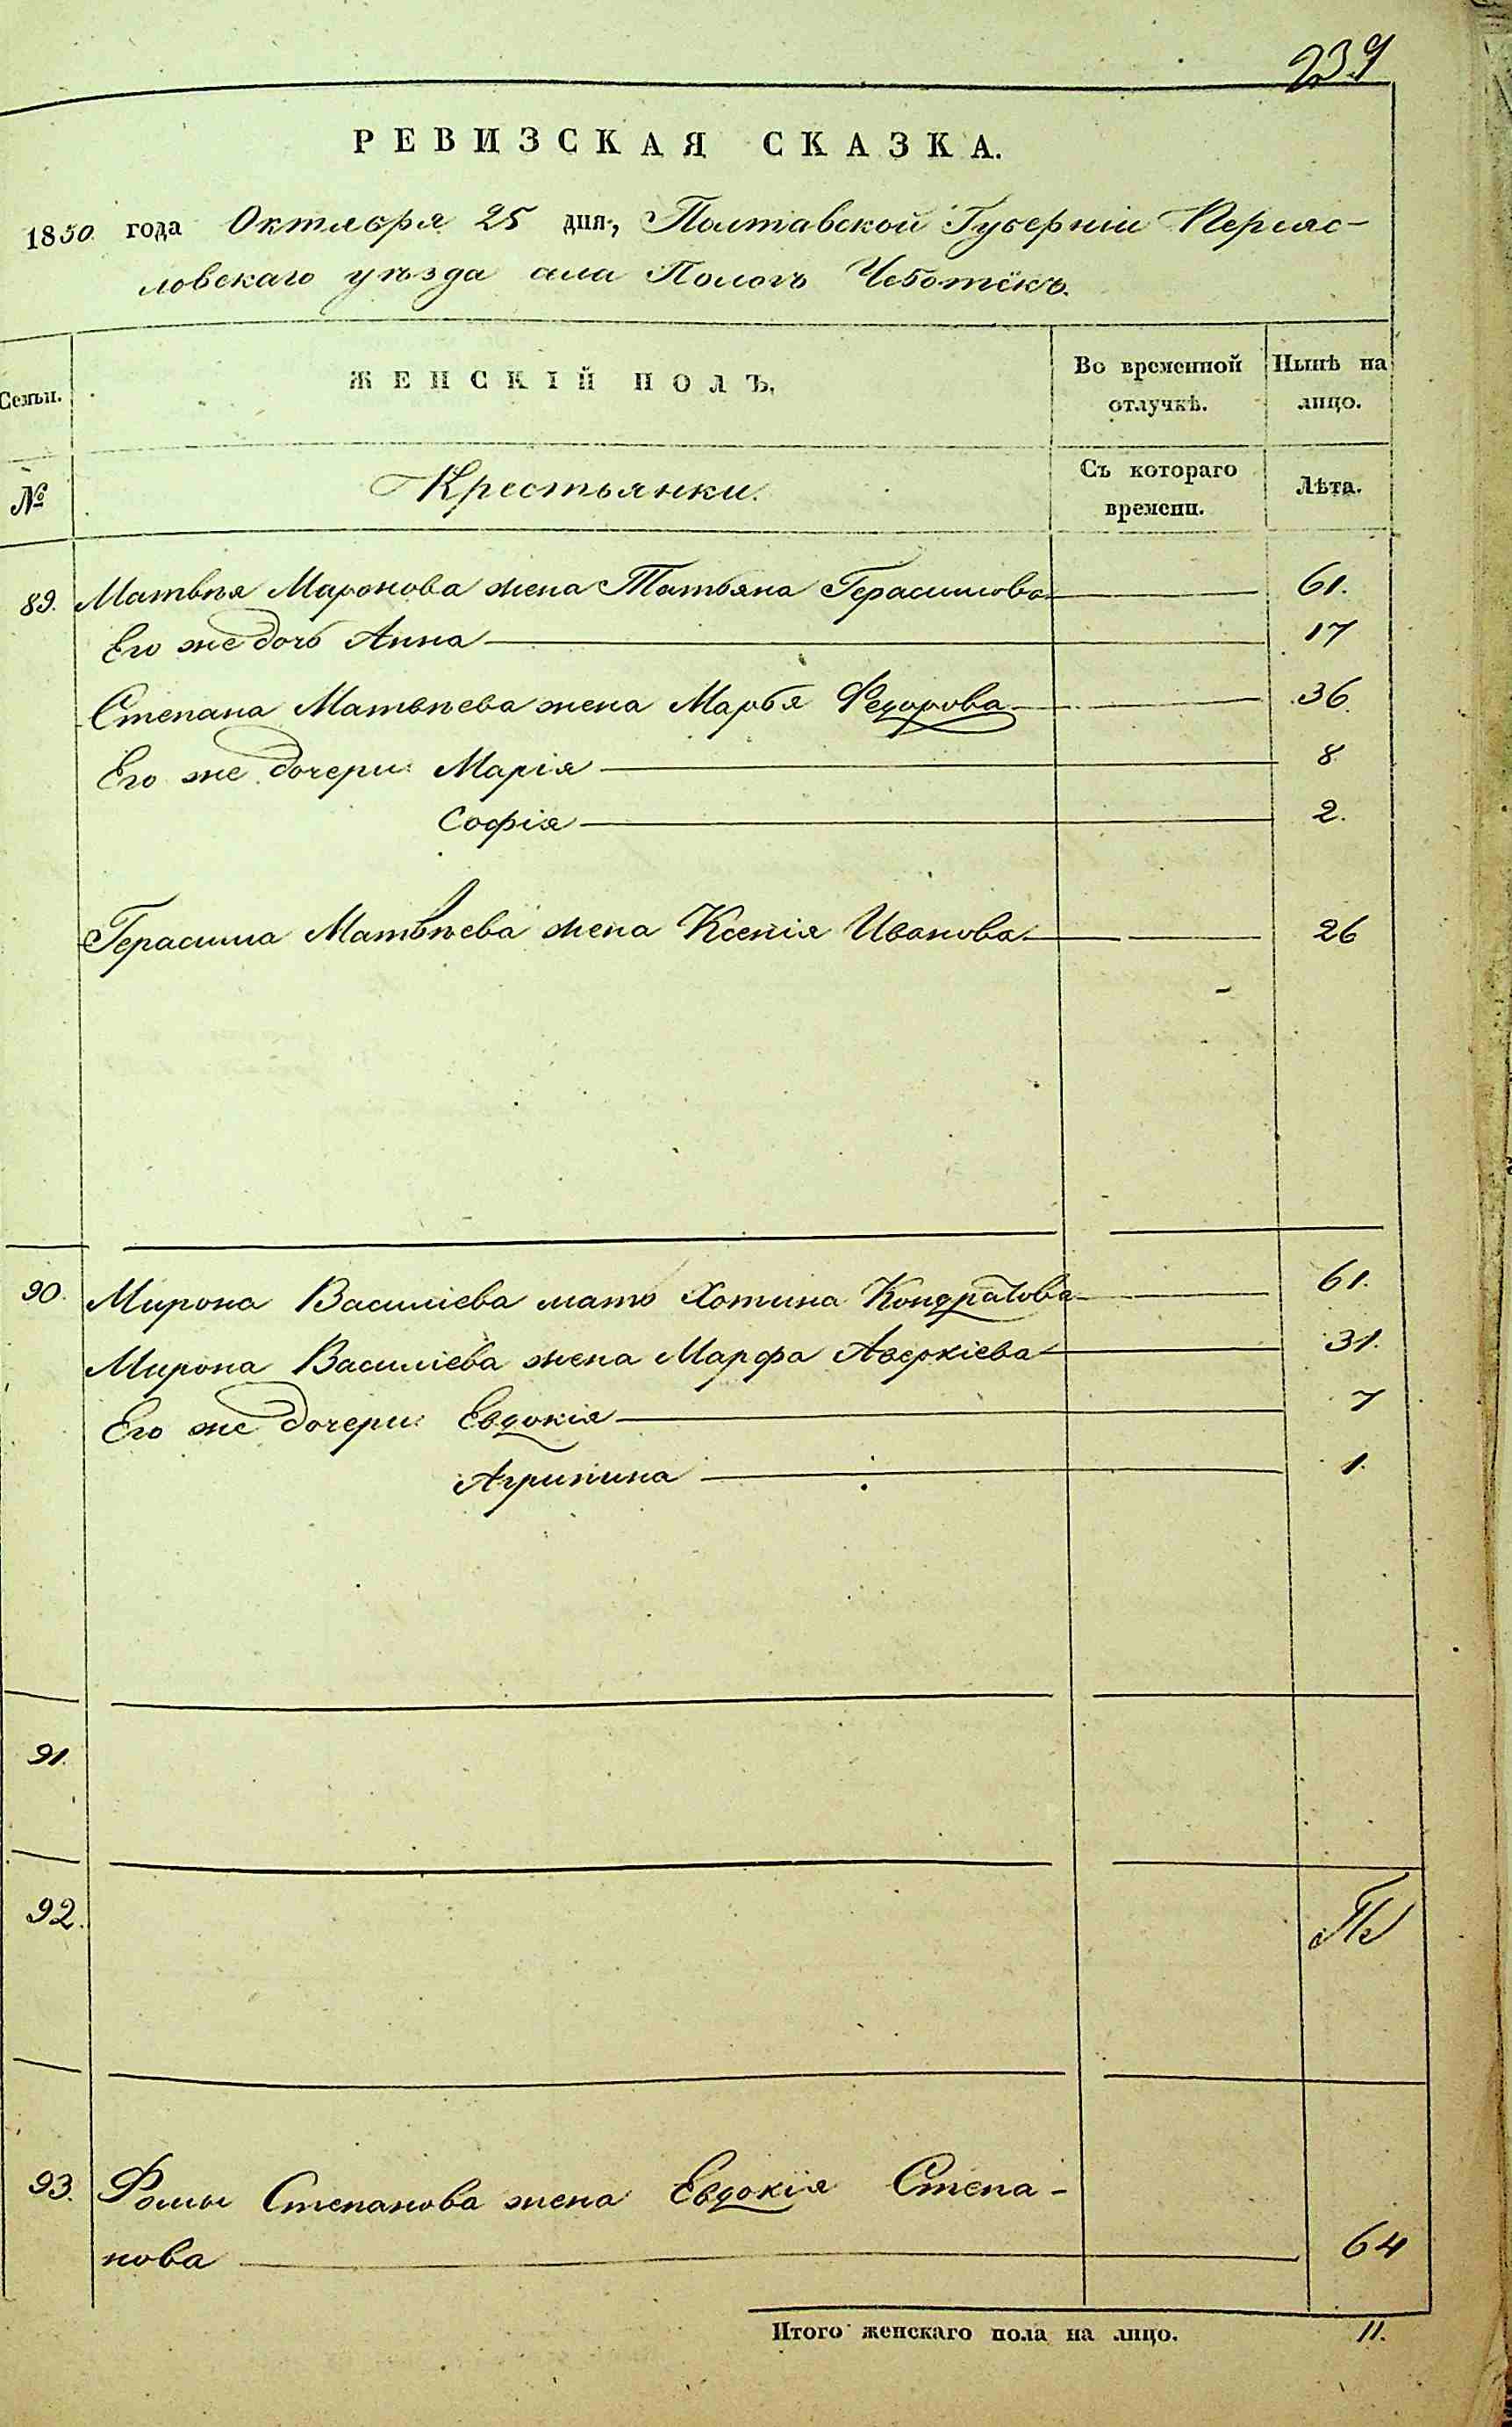 239
РЕВИЗСКАЯ СКАЗКА.
1850 года Октября 25 дня, Полтавской Губерніи Переяс-
ловскаго уѣзда села Пологъ Чеботекъ.
Семьи. ЖЕНСКІЙ ПОЛЪ. Во временной отлучкѣ. Нынѣ на лицо.
№ Крестьянки. Съ котораго времени. Лѣта.
89. Матвѣя Миронова жена Татьяна Герасимова 61.
Его же дочь Анна 17
Степана Матвѣева жена Марья Федорова 36.
Его же дочери: Марія 8
Софія 2.
Герасима Матвѣева жена Ксенія Иванова 26
90. Мирона Василіева мать Хотина Кондратова 61.
Мирона Василіева жена Марфа Аверкіева 31.
Его же дочери: Евдокія 7
Агрипина 1.
91.
92.
93. Фомы Степанова жена Евдокія Степа-
нова 64
Итого женскаго пола на лицо. 11.